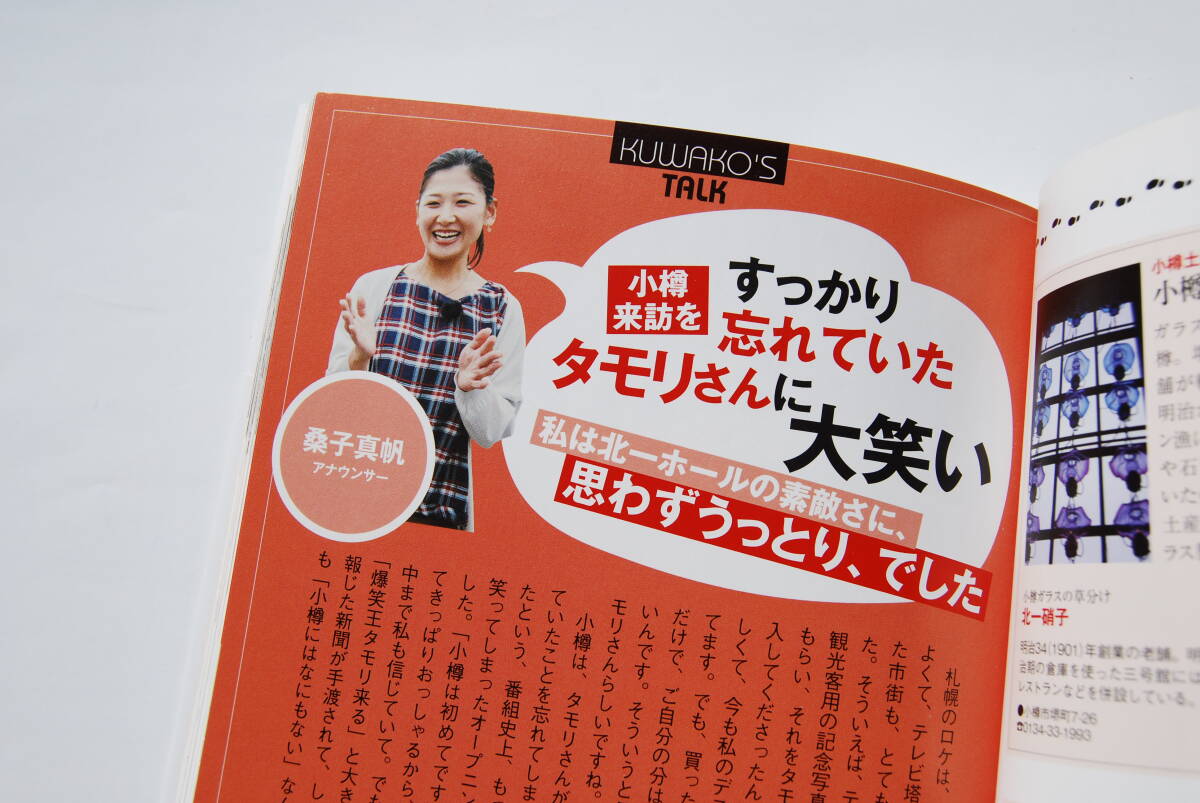 KUWAKO'S
TALK
小樽
来訪を
すっかり
忘れていた
タモリさんに
大笑い
私は北一ホールの素敵さに、
思わずうっとり、でした
桑子真帆
アナウンサー
札幌のロケは、
よくて、テレビ塔
た市街も、とても
た。そういえば、テ
観光客用の記念写真
もらい、それをタモ
入してくださったん
しくて、今も私のデス
てます。でも、買った
だけで、ご自分の分は
いんです。そういうと
モリさんらしいですね。
小樽は、タモリさんが
ていたことを忘れてしま
たという、番組史上、もっ
笑ってしまったオープニン
した。「小樽は初めてです
てきっぱりおっしゃるから、
中まで私も信じていて。でも
「爆笑王タモリ来る」と大き
報じた新聞が手渡されて、し
も「小樽にはなにもない」なん
小樽土
小樽
ガラ
樽。
舗が
明治
ン漁
や石
いた
土産
ラス
小樽ガラスの草分け
北一硝子
明治34(1901)年創業の老舗。明
治期の倉庫を使った三号館には
レストランなどを併設している。
●小樽市堺町7-26
☎0134-33-1993